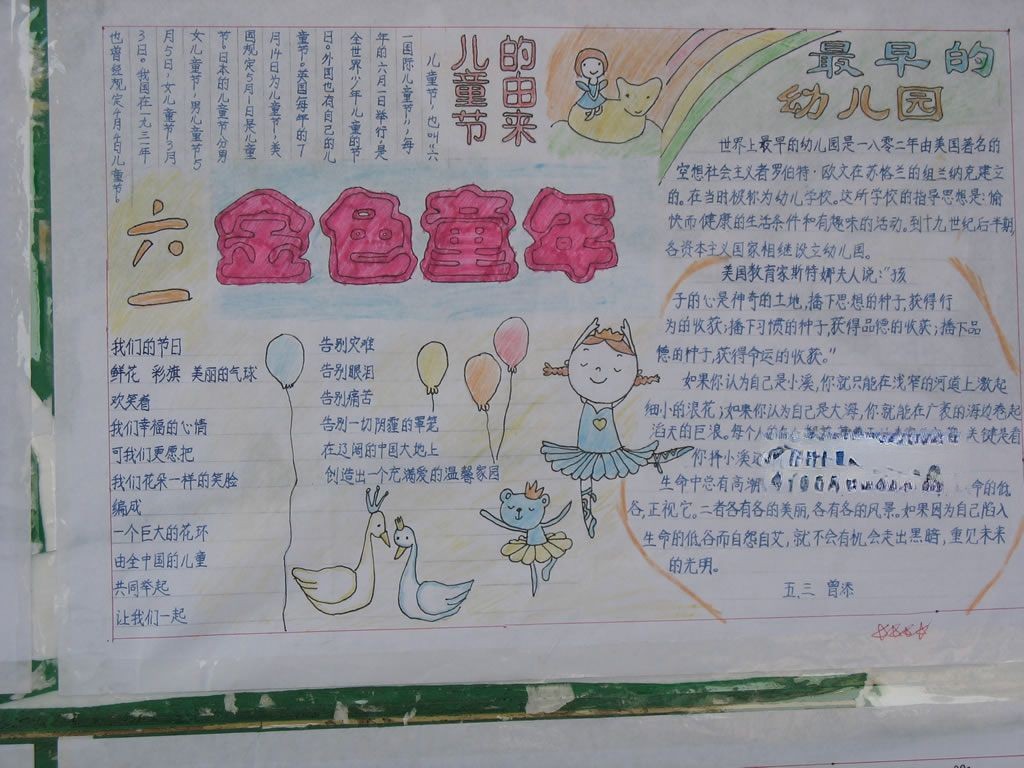 儿童节的由来
儿童节，也叫“六
一国际儿童节”，每
年的六月一日举行，是
全世界少年儿童的节
日。外国也有自己的儿
童节。英国每年的7
月14日为儿童节；美
国规定5月1日是儿童
节。日本的儿童节分男
女儿童节，男儿童节5
月5日，女儿童节3月
3日。我国在一九三一年
也曾经规定4月4日儿童节。
六一
金色童年
我们的节日
鲜花 彩旗 美丽的气球
欢笑着
我们幸福的心情
可我们更愿把
我们花朵一样的笑脸
编成
一个巨大的花环
由全中国的儿童
共同举起
让我们一起
告别灾难
告别眼泪
告别痛苦
告别一切阴霾的罩笼
在辽阔的中国大地上
创造出一个充满爱的温馨家园
最早的
幼儿园
世界上最早的幼儿园是一八零二年由美国著名的
空想社会主义者罗伯特·欧文在苏格兰的纽兰纳克建立
的。在当时极称为幼儿学校。这所学校的指导思想是：愉
快而健康的生活条件和有趣味的活动。到十九世纪后半期
各资本主义国家相继设立幼儿园。
美国教育家斯特娜夫人说：“孩
子的心是神奇的土地，播下思想的种子，获得行
为的收获；播下习惯的种子，获得品德的收获；播下品
德的种子，获得命运的收获。”
如果你认为自己是小溪，你就只能在浅窄的河道上激起
细小的浪花；如果你认为自己是大海，你就能在广袤的海边卷起
滔天的巨浪。每个人 关键是看
你择小溪
生命中总有高潮 命的低
谷，正视它。二者各有各的美丽，各有各的风景。如果因为自己陷入
生命的低谷而自怨自艾，就不会有机会走出黑暗，重见未来
的光明。
五.三 曾添